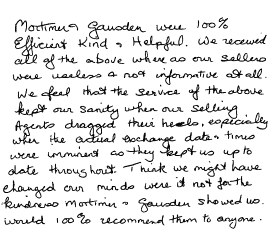 Mortimer & Gausden were 100%
Efficient Kind & Helpful. We received
all of the above where as our sellers
were useless & not informative at all.
We feel that the service of the above
kept our sanity when our selling
Agents dragged their heels, especially
when the actual exchange date & times
were imminent as they kept us up to
date throughout. Think we might have
changed our minds were it not for the
kindness Mortimer & Gausden showed us.
would 100% recommend them to anyone.